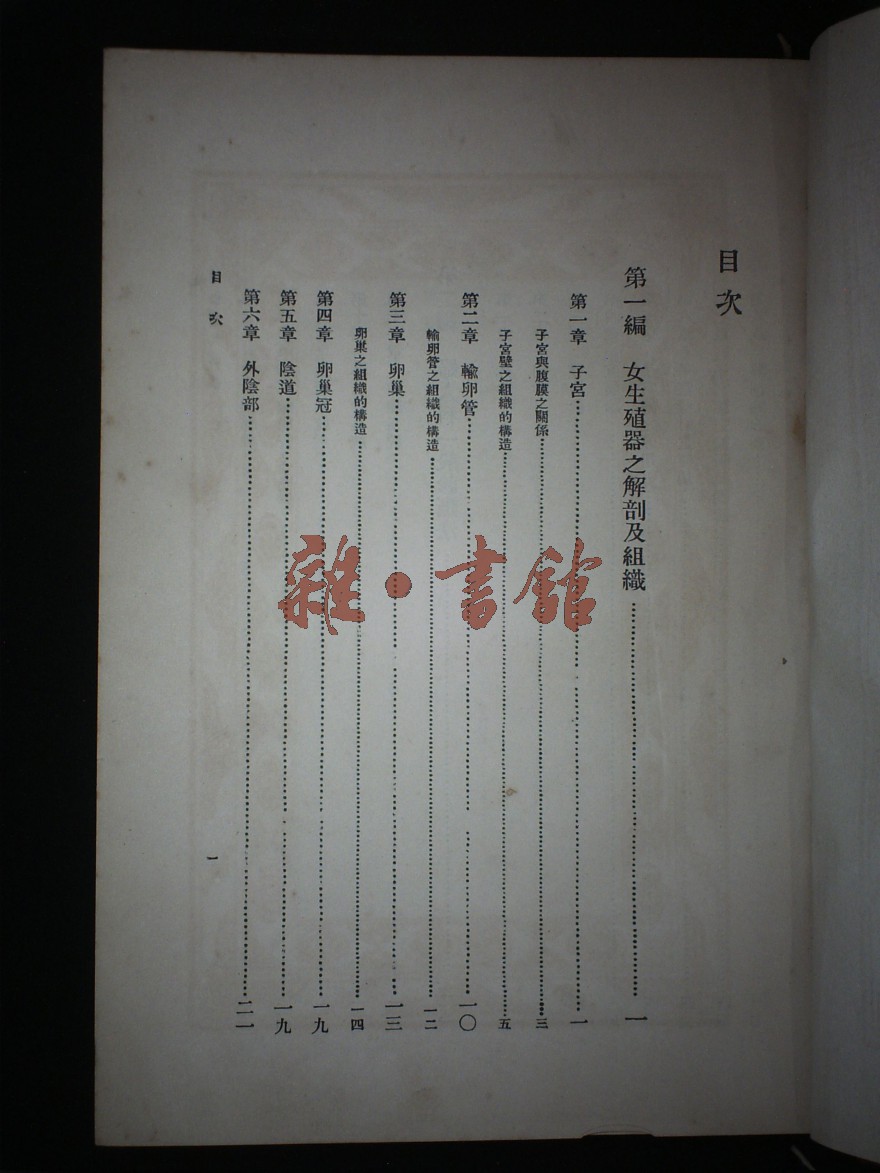 目次
第一編 女生殖器之解剖及組織……一
第一章 子宮……一
子宮與腹膜之關係……三
子宮壁之組織的構造……五
第二章 輸卵管……一〇
輸卵管之組織的構造……一二
第三章 卵巢……一三
卵巢之組織的構造……一四
第四章 卵巢冠……一九
第五章 陰道……一九
第六章 外陰部……二一
目次 一
雜·書館